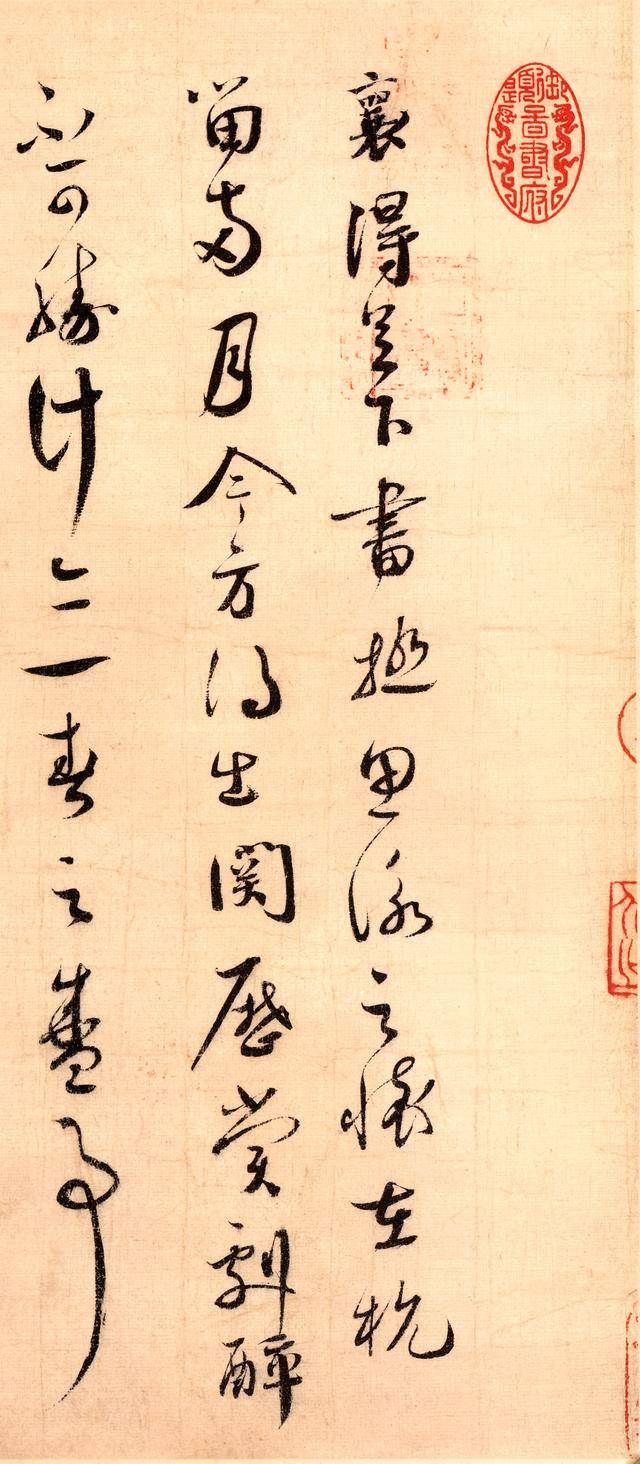 襄得足下書極思詠之懷在杭
留兩月今方得出關歷賞劇醉
不可勝計亦一春之盛事